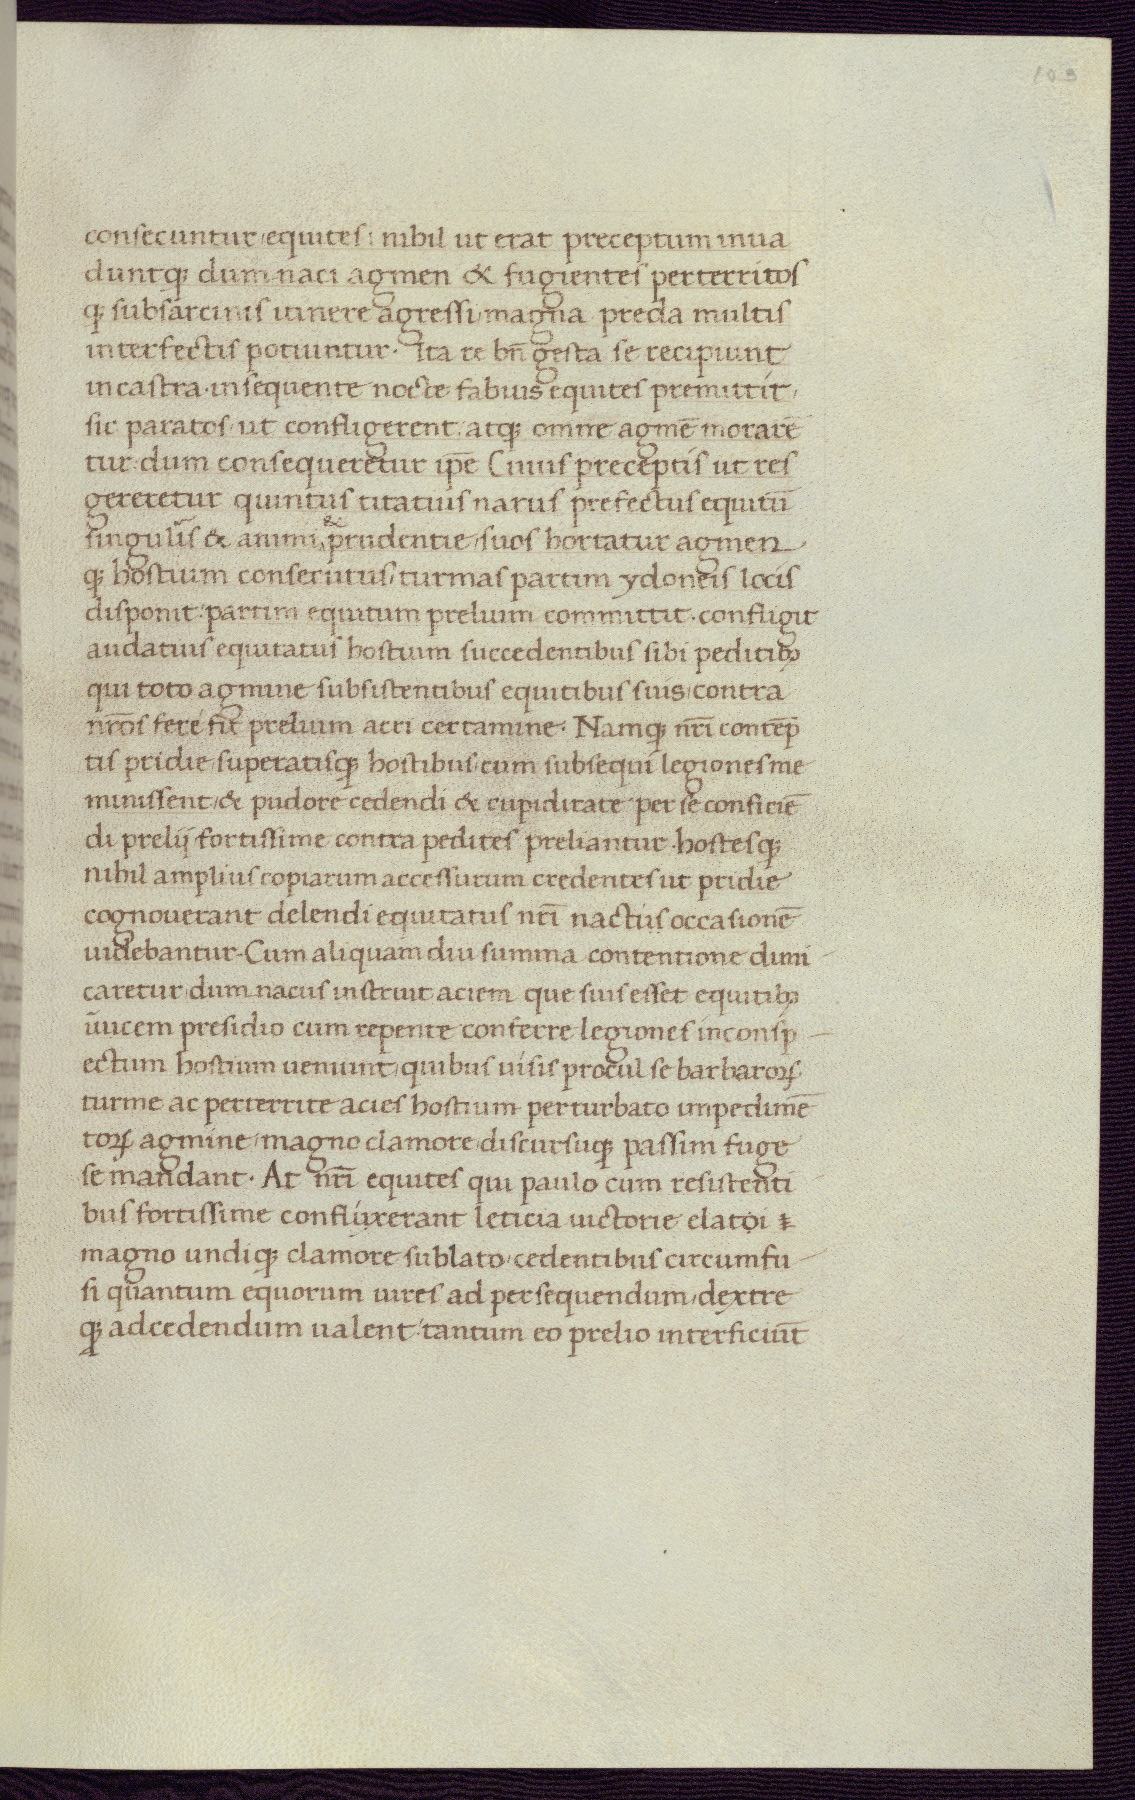 103
consecuntur equites: nihil ut erat preceptum inua
duntq; dum naci agmen & fugientes perterritos
q; subsarcinis itinere agressi magna preda multis
interfectis potiuntur. Ita re bn̄ gesta se recipiunt
incastra. insequente nocte fabius equites premittit,
sic paratos ut confligerent. atq; omne agmē morarē
tur. dum consequeretur ip̄e Cuius preceptis ut res
gereretur quintus titatius narus prefectus equitū
singul̄is & animi & prudentie suos hortatur agmen
q; hostium consecutus, turmas partim ydoneis locis
disponit: partim equitum prelium committit. confligit
audatius equitatus hostium succedentibus sibi peditibꝫ
qui toto agmine subsistentibus equitibus suis contra
nr̄os fere fit prelium acri certamine. Namq; nr̄i contēp
tis pridie superatisq; hostibus cum subsequi legiones me
minissent, & pudore cedendi & cupiditate per se conficiē
di prelij fortissime contra pedites preliantur. hostesq;
nihil amplius copiarum accessurum credentes ut pridie
cognouerant delendi equitatus nr̄i nactus occasionē
uidebantur. Cum aliquam diu summa contentione dimi
caretur dum nacus instruit aciem que suis esset equitibꝫ
uicem presidio cum repente conferre legiones inconsp
ectum hostium ueniunt, quibus uisis procul se barbaroꝝ
turme ac perterrite acies hostium perturbato impedimē
toꝝ agmine magno clamore discursuq; passim fuge
se mandant. At nr̄i equites qui paulo cum resistenti
bus fortissime confluxerant leticia uictorie elatoi
magno undiq; clamore sublato cedentibus circumfu
si quantum equorum uires ad persequendum, dextre
q; adcedendum ualent tantum eo prelio interficiūt